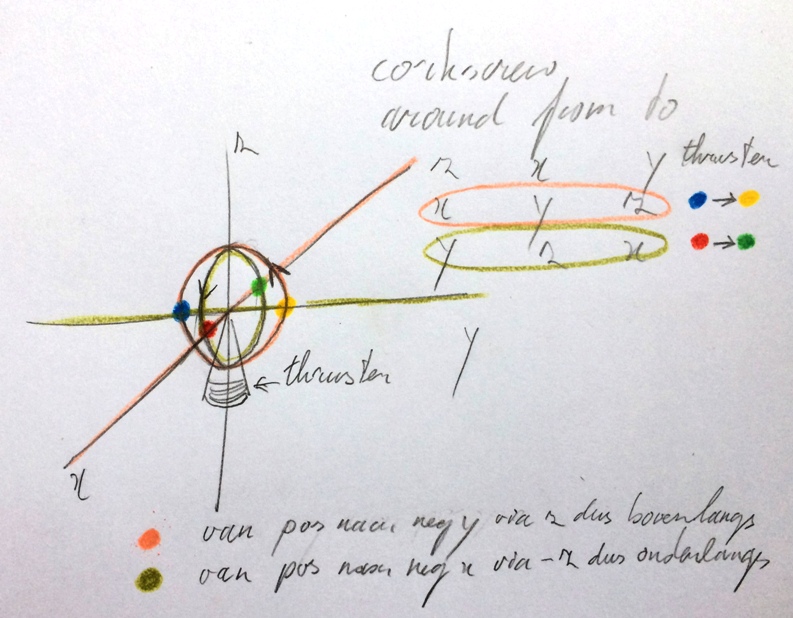 corkscrew
around from to
z x y thruster
x y z
y z x
z
y
thruster
x
van pos naar neg y via z dus bovenlangs
van pos naar neg x via -z dus onderlangs